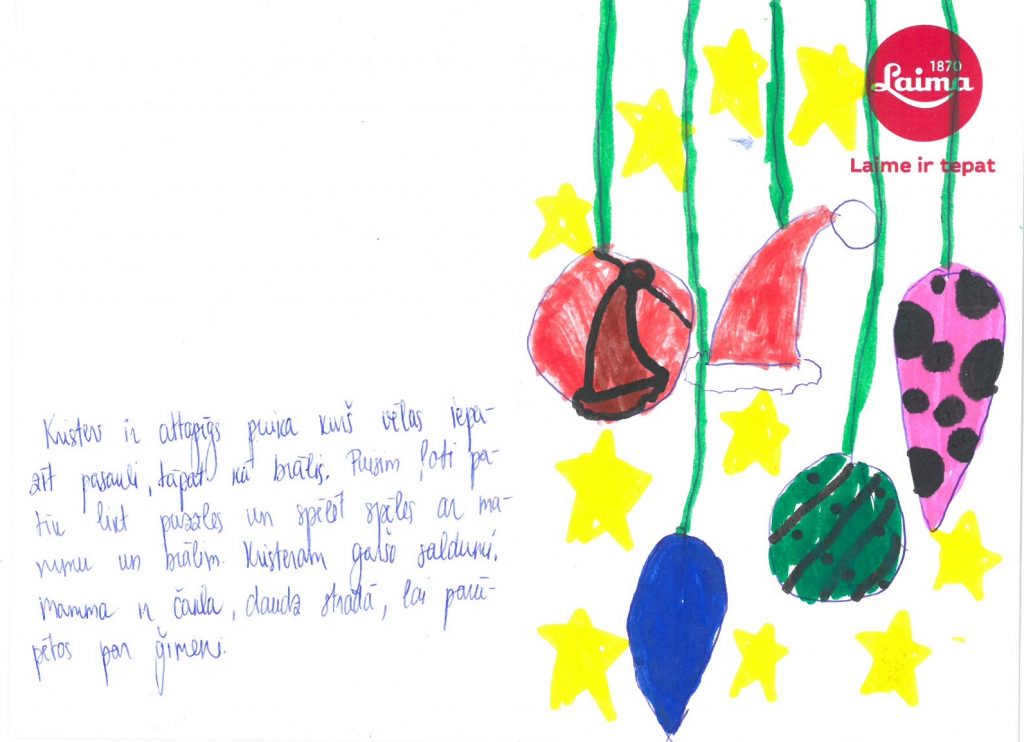 Kristers ir attapīgs puika kurš vēlas iepa-
zīt pasauli, tāpat kā brālis. Puisim ļoti pa-
tīk likt puzzles un spēlēt spēles ar ma-
mmu un brālim. Kristeram garšo saldumi.
Mamma ir čakla, daudz strādā, lai parū-
pētos par ģimeni.
1870
Laima
Laime ir tepat